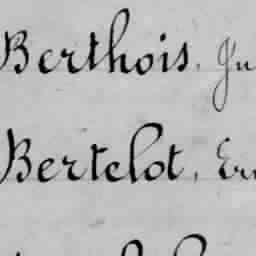 Berthois. Ju
Bertelot, Er